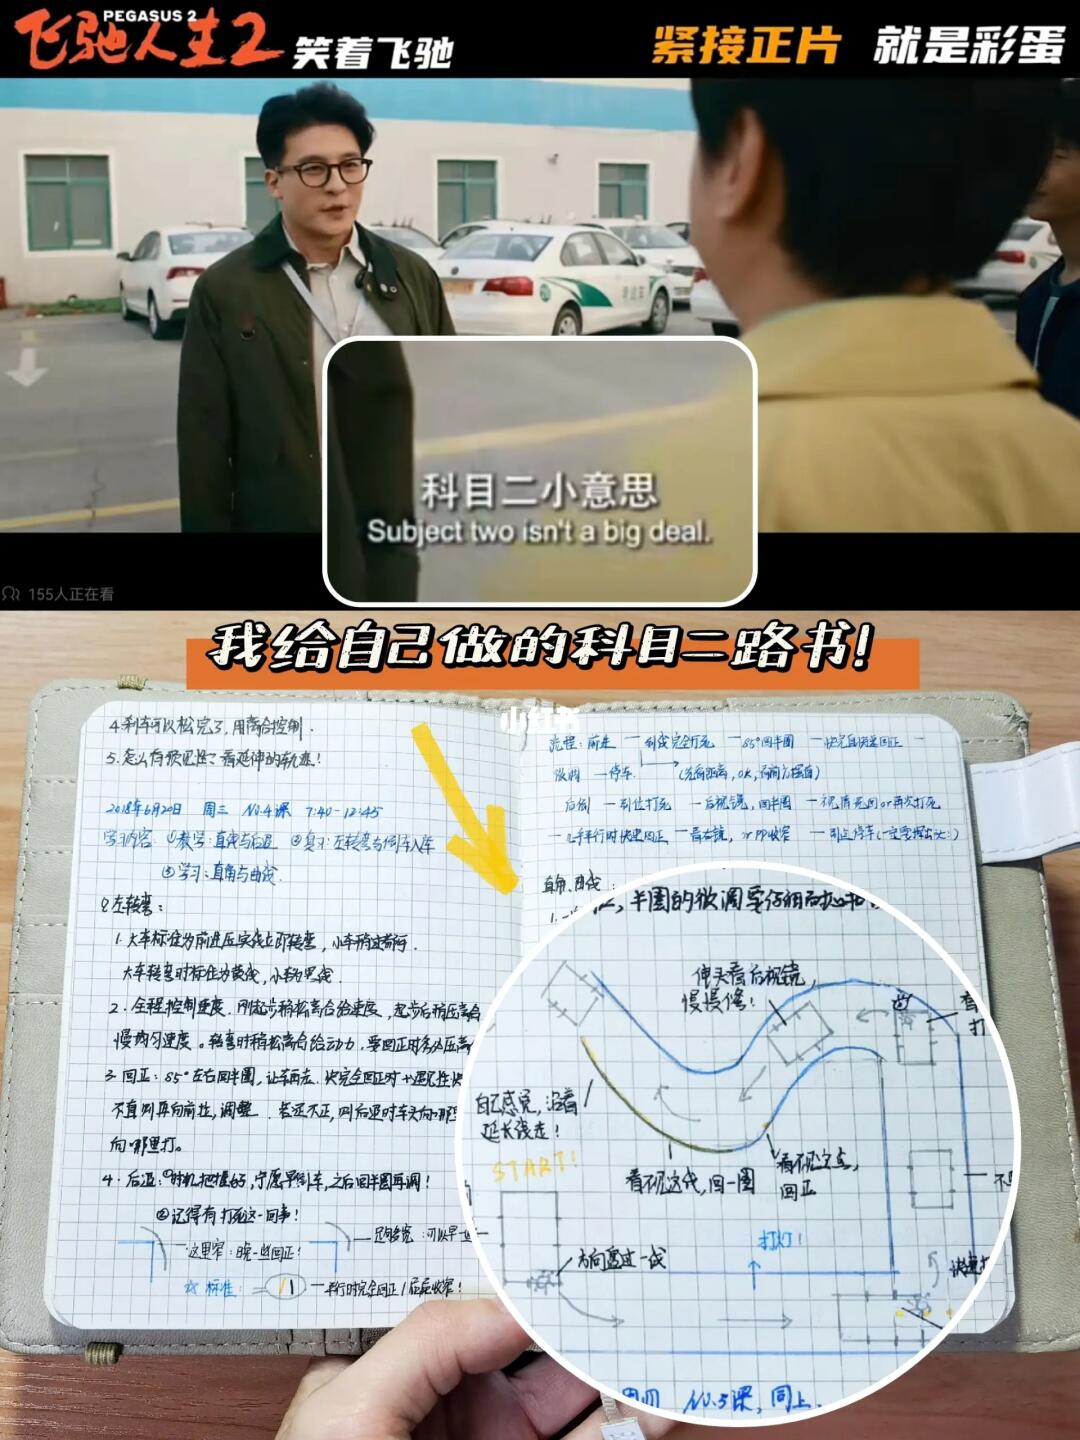 飞驰人生2
PEGASUS 2
笑着飞驰
紧接正片 就是彩蛋
科目二小意思
Subject two isn't a big deal.
155人正在看
我给自己做的科目二路书!
小红书
4.刹车可以松完了,用离合控制.
5.怎么有预见性?看延伸的轨迹!
2018年6月20日 周三 No.4课 7:40-12:45
学习内容:①教学:直线与后退 ②复习:左转弯与倒车入库
③学习:直角与曲线.
左转弯:
1.大车标准为前进压实线立即转弯,小车稍过荷行.
大车转弯时标准为黄线,小转为黑线.
2.全程控制速度.刚起步稍松离合给速度,起步后稍压离合
慢或匀速度。转弯时稍松离合给动力,要回正时多少压离
3.回正:85°左右回半圈,让车再走.快完全回正时
不直则再向前拉,调整.若还不正,则后退时车头向哪里
向哪里打。
4.后退:①时机把握好,宁愿早倒车,之后回半圈再调!
②记得有打死这一回事!
这里窄:晚一些回正!
足够多宽:可以早一些
标准:
平行时完全回正
流程:前进 — 到线完全打死 — 85°回半圈 — 快完直快速回正 —
微调 — 停车. (先看距离,OK,荷前方摆直)
后倒 — 到位打死 — 后视镜,回半圈 — 视情况回or再次打死
— 几乎平行时快速回正 — 看右镜,
直角、曲线:
半圈的微调要仔细
伸头看后视镜,
慢慢修!
自己感觉,沿着
延长线走!
START!
看不见这线,回一圈
看不见定点,
回正
打灯!
方向盘过一线
No.5课,同上.